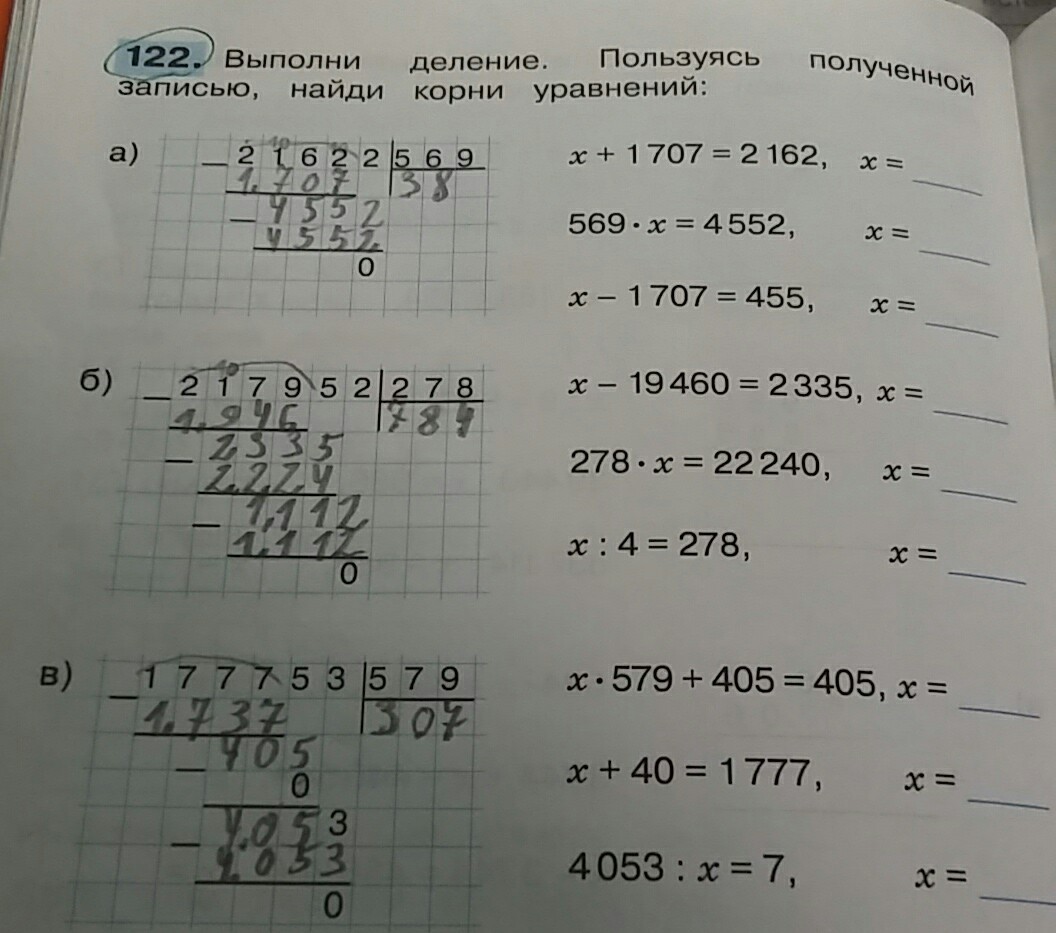 122. Выполни деление. Пользуясь полученной
записью, найди корни уравнений:
а) – 2 1 6 2 2 | 5 6 9
1 7 0 7 | 3 8
– 4 5 5 2
4 5 5 2
0
x + 1 707 = 2 162, x = ___
569 · x = 4 552, x = ___
x – 1 707 = 455, x = ___
б) – 2 1 7 9 5 2 | 2 7 8
1 9 4 6 | 7 8 4
– 2 3 3 5
2 2 2 4
– 1 1 1 2
1 1 1 2
0
x – 19 460 = 2 335, x = ___
278 · x = 22 240, x = ___
x : 4 = 278, x = ___
в) – 1 7 7 7 5 3 | 5 7 9
1 7 3 7 | 3 0 7
– 4 0 5
0
– 4 0 5 3
4 0 5 3
0
x · 579 + 405 = 405, x = ___
x + 40 = 1 777, x = ___
4 053 : x = 7, x = ___